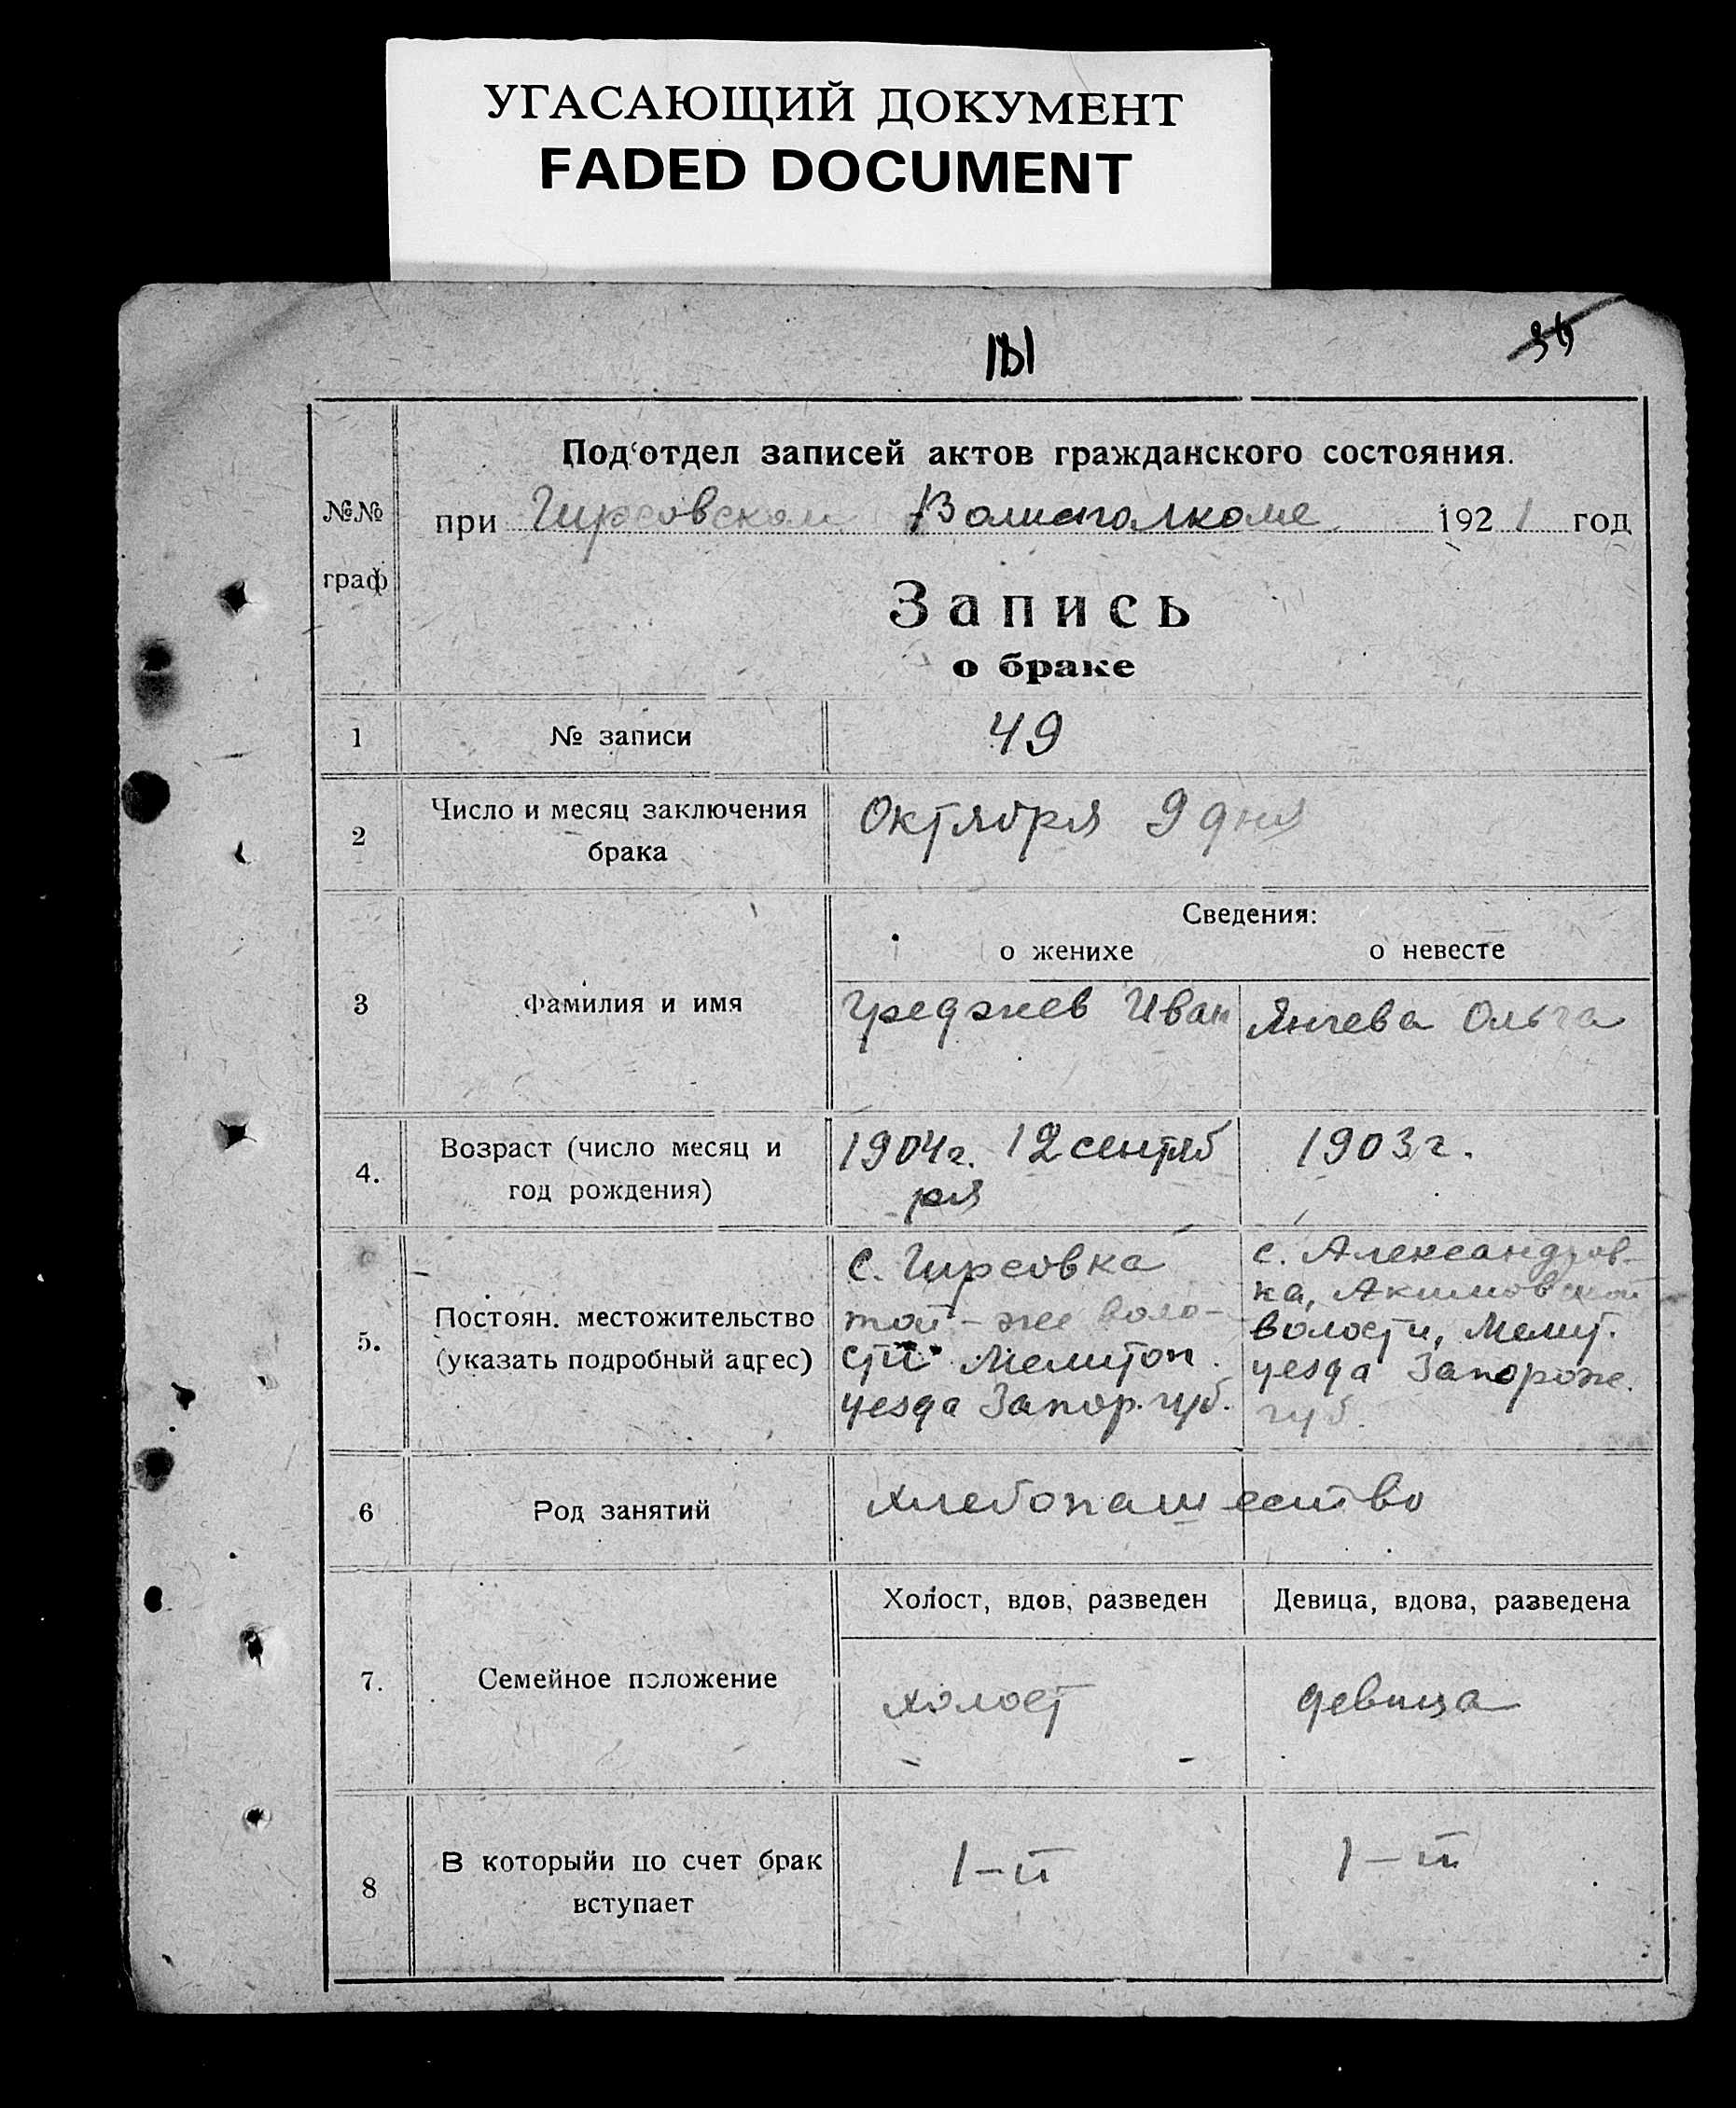 УГАСАЮЩИЙ ДОКУМЕНТ
FADED DOCUMENT
№№
граф
Под'отдел записей актов гражданского состояния.
при Гирсовском Волисполкоме 1921 год
Запись
о браке
1 № записи 49
2 Число и месяц заключения брака Октября 9 дня
Сведения:
о женихе о невесте
3 Фамилия и имя Иван Янчева Ольга
4. Возраст (число месяц и
год рождения)
1904г. 12 сентяб
ря
1903 г.
5. Постоян. местожительство
(указать подробный адрес)
с. Гирсовка
той-же воло-
сти Мелитоп.
уезда Запор. губ.
с. Александров-
ка, Акимовской
волости, Мелит.
уезда Запорож.
губ.
6 Род занятий хлебопашество
Холост, вдов, разведен Девица, вдова, разведена
7. Семейное положение холост девица
8 В которыйи по счет брак
вступает
1-й 1-й